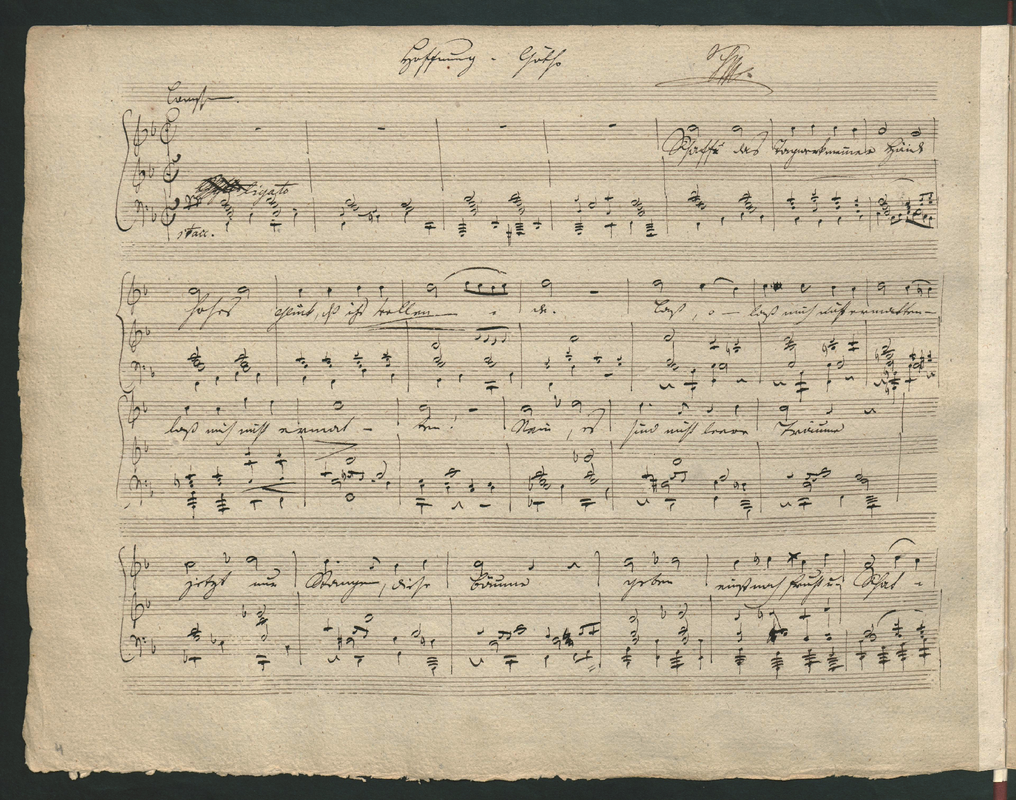 Hoffnung. Göthe
Langsam.
Schaff, das Tagwerk meiner Hände
ligato
stac.
hohes Glück, daß ichs vollen - de.     Laß, o - laß mich nicht ermatten -
laß mich nicht ermat - ten!     Nein, es sind nicht leere Träume
jetzt nur Stangen, diese Bäume geben einst noch Frucht u. Schat -
4